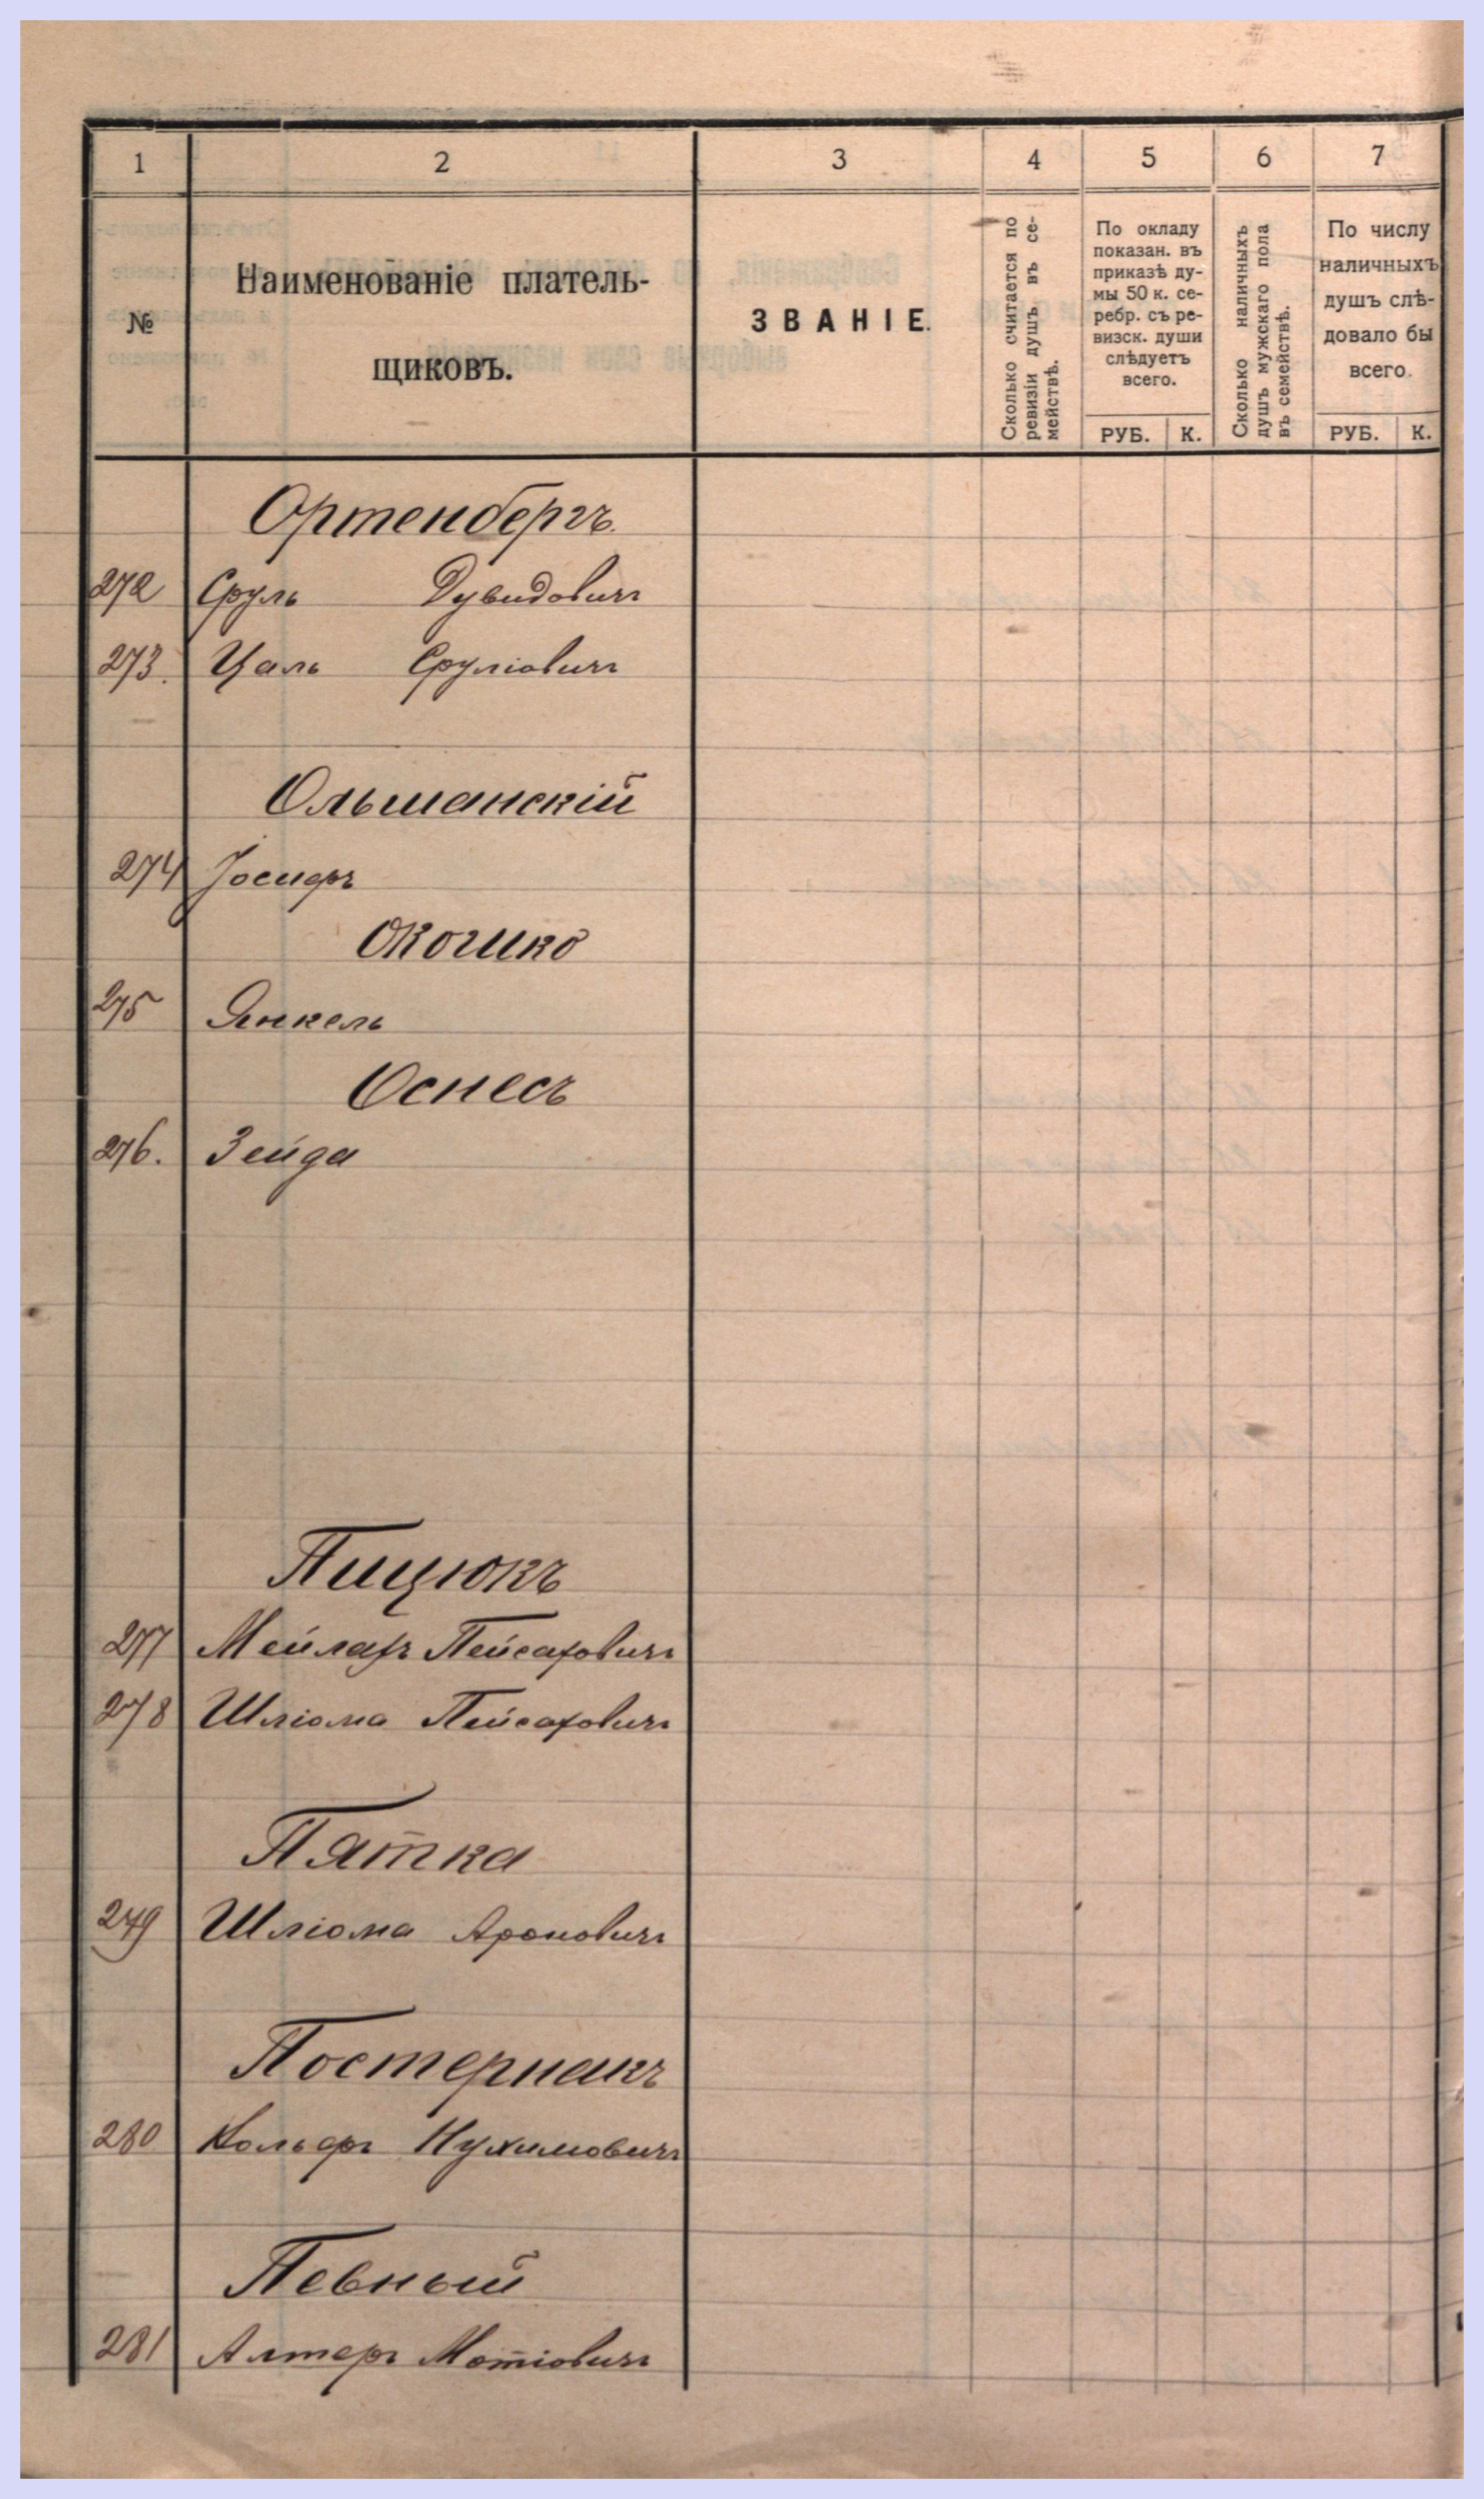 1 2 3 4 5 6 7
№
Наименованіе платель-
щиковъ.
ЗВАНІЕ.
Сколько считается по
ревизіи душъ въ се-
мействѣ.
По окладу
показан. въ
приказѣ ду-
мы 50 к. се-
ребр. съ ре-
визск. души
слѣдуетъ
всего.
РУБ. К.
Сколько наличныхъ
душъ мужскаго пола
въ семействѣ.
По числу
наличныхъ
душъ слѣ-
довало бы
всего.
РУБ. К.
Ортенбергъ.
272 Сруль Дувидовичъ
273. Цаль Сруліовичъ
Ольшанскій
274 Іосифъ
275 Янкель
Оснесъ
276. Зейда
Пицюкъ
277 Мейлахъ Пейсаховичъ
278 Шліома Пейсаховичъ
Пятка
279 Шліома Ароновичъ
Постернакъ
280 Кольфъ Нухимовичъ
Певный
281 Алтеръ Мотіовичъ